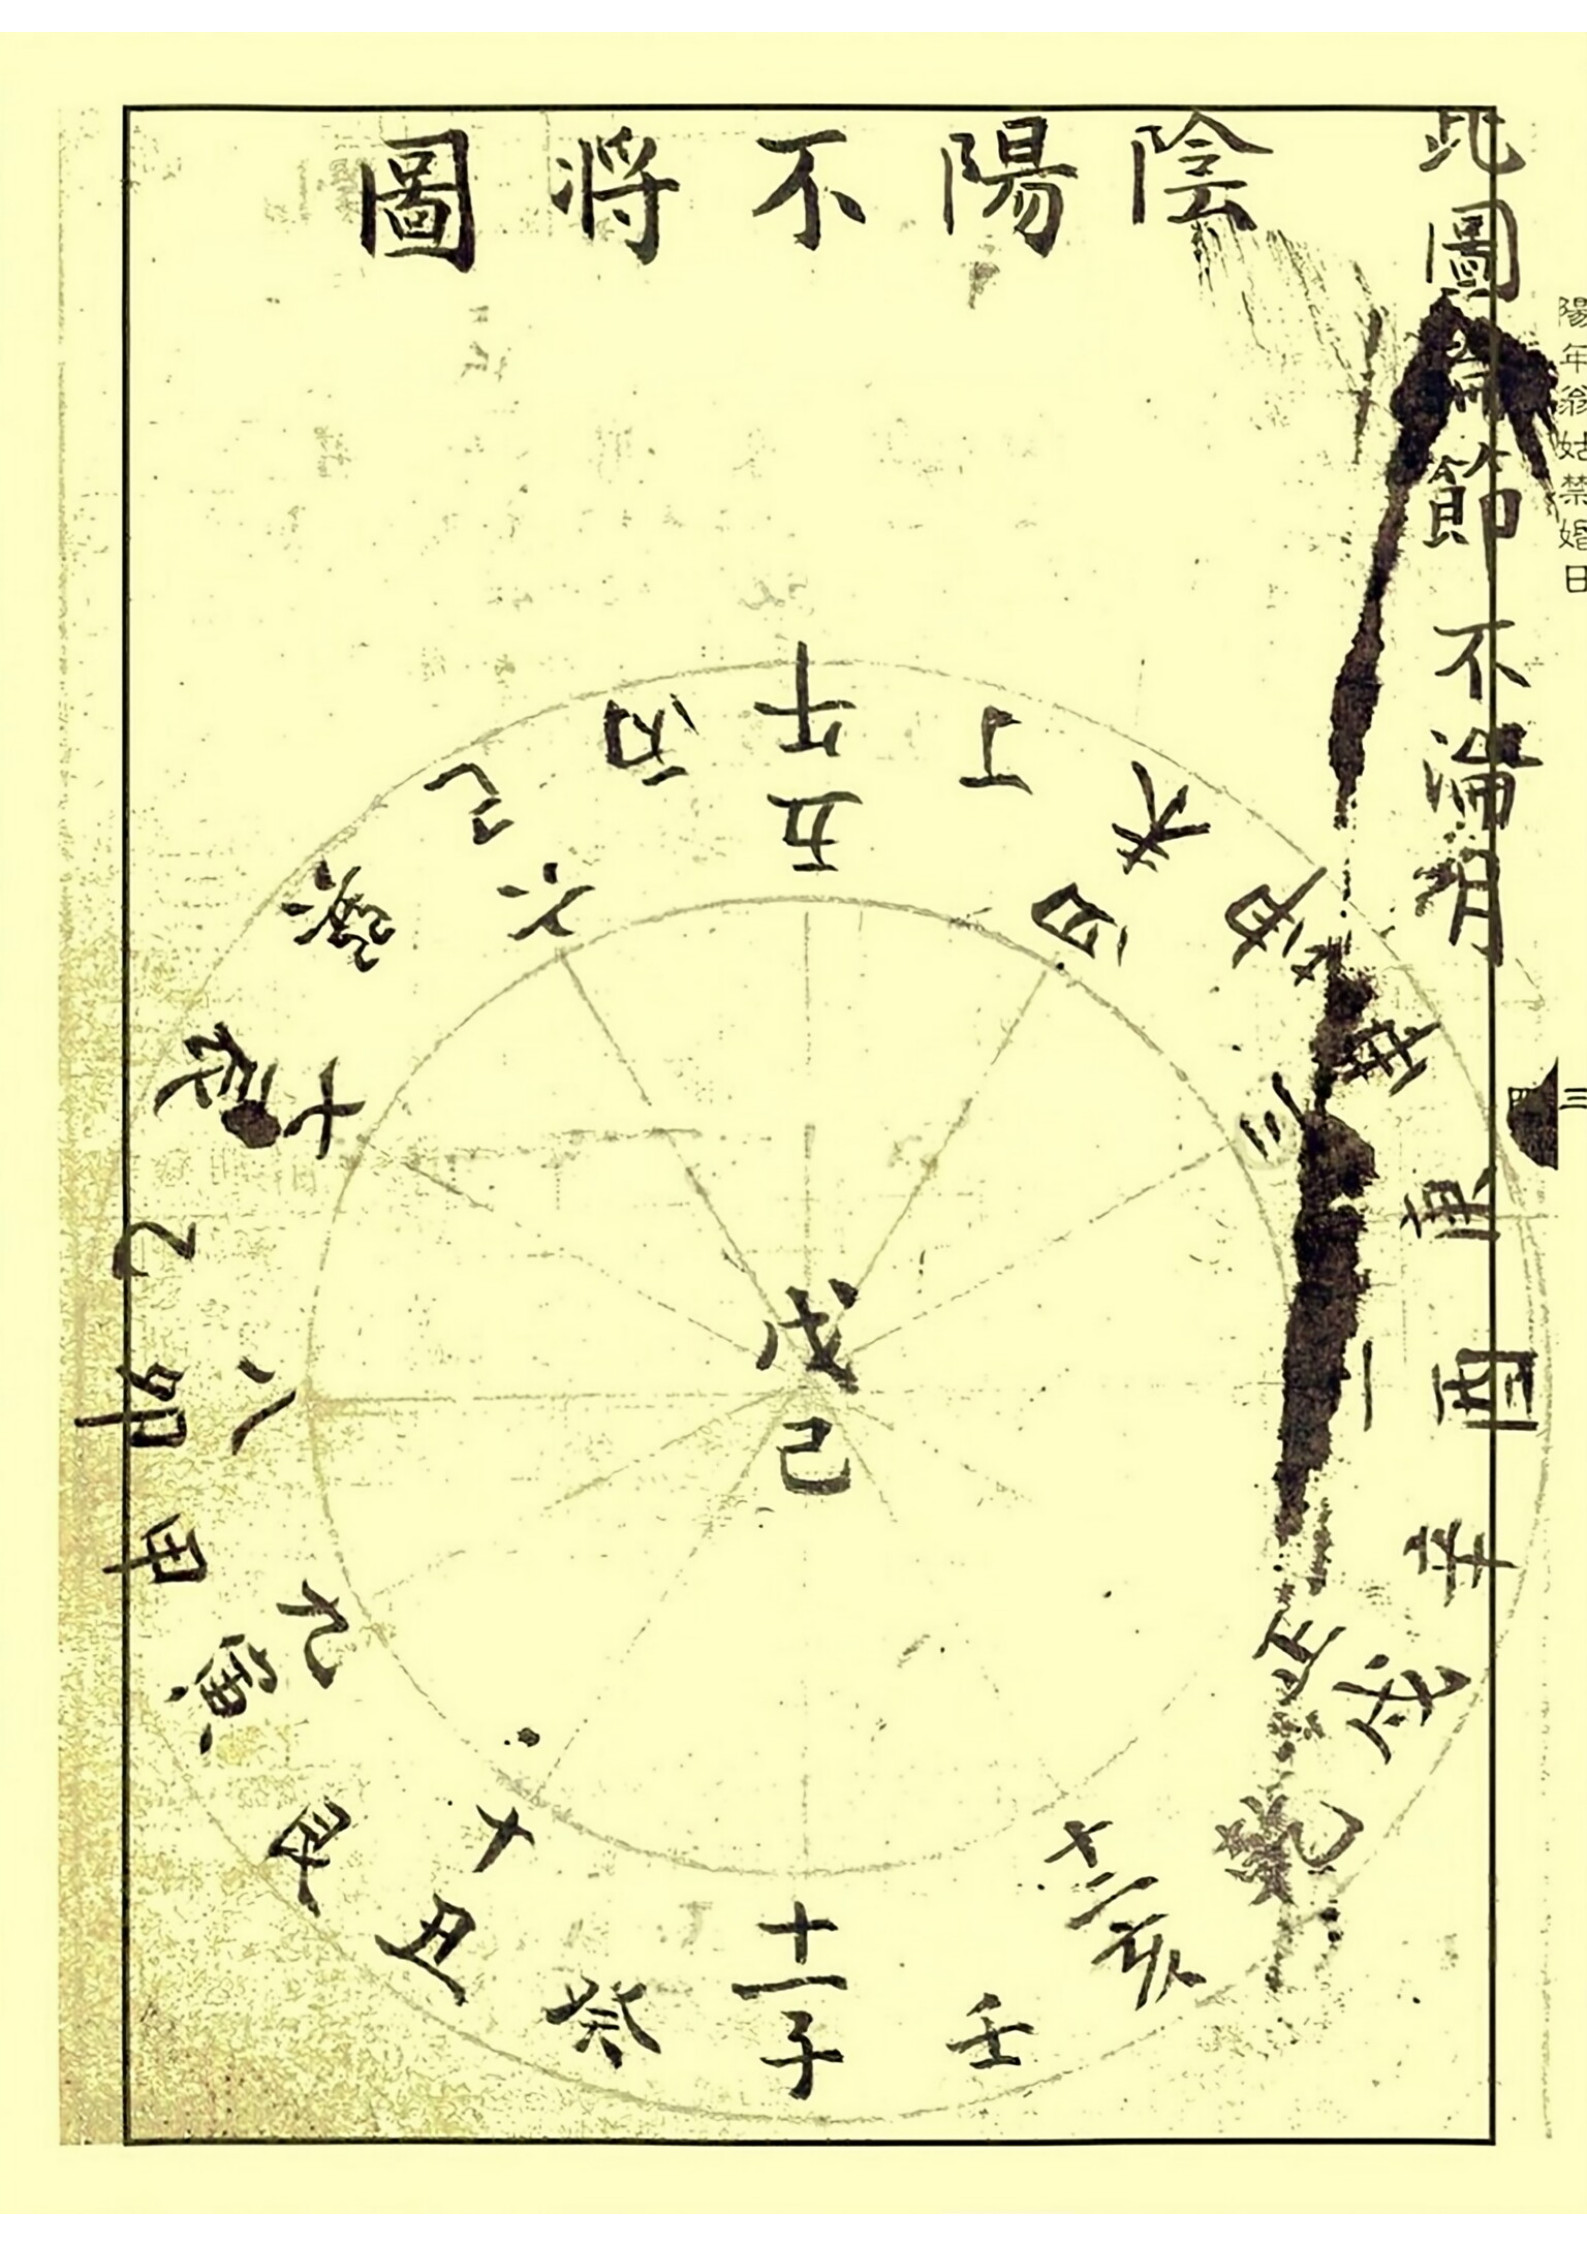 陽年翁姑禁婚日
三
四
此圖論節不論月
陰陽不將圖
午
五
丁
未
四
坤
申
三
庚
酉
二
辛
戌
正
乾
亥
十二
壬
十一
子
癸
丑
十
艮
寅
九
甲
卯
八
乙
辰
七
巽
巳
六
丙
戊
己